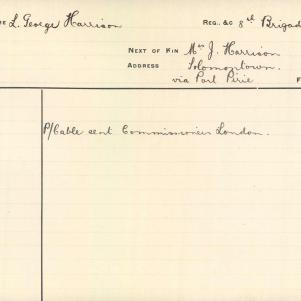 L. George Harrison REG. &C 8th Brigad
NEXT OF KIN Mrs J. Harrison
ADDRESS Solomontown
via Port Pirie F
P/Cable sent Commissioner London.